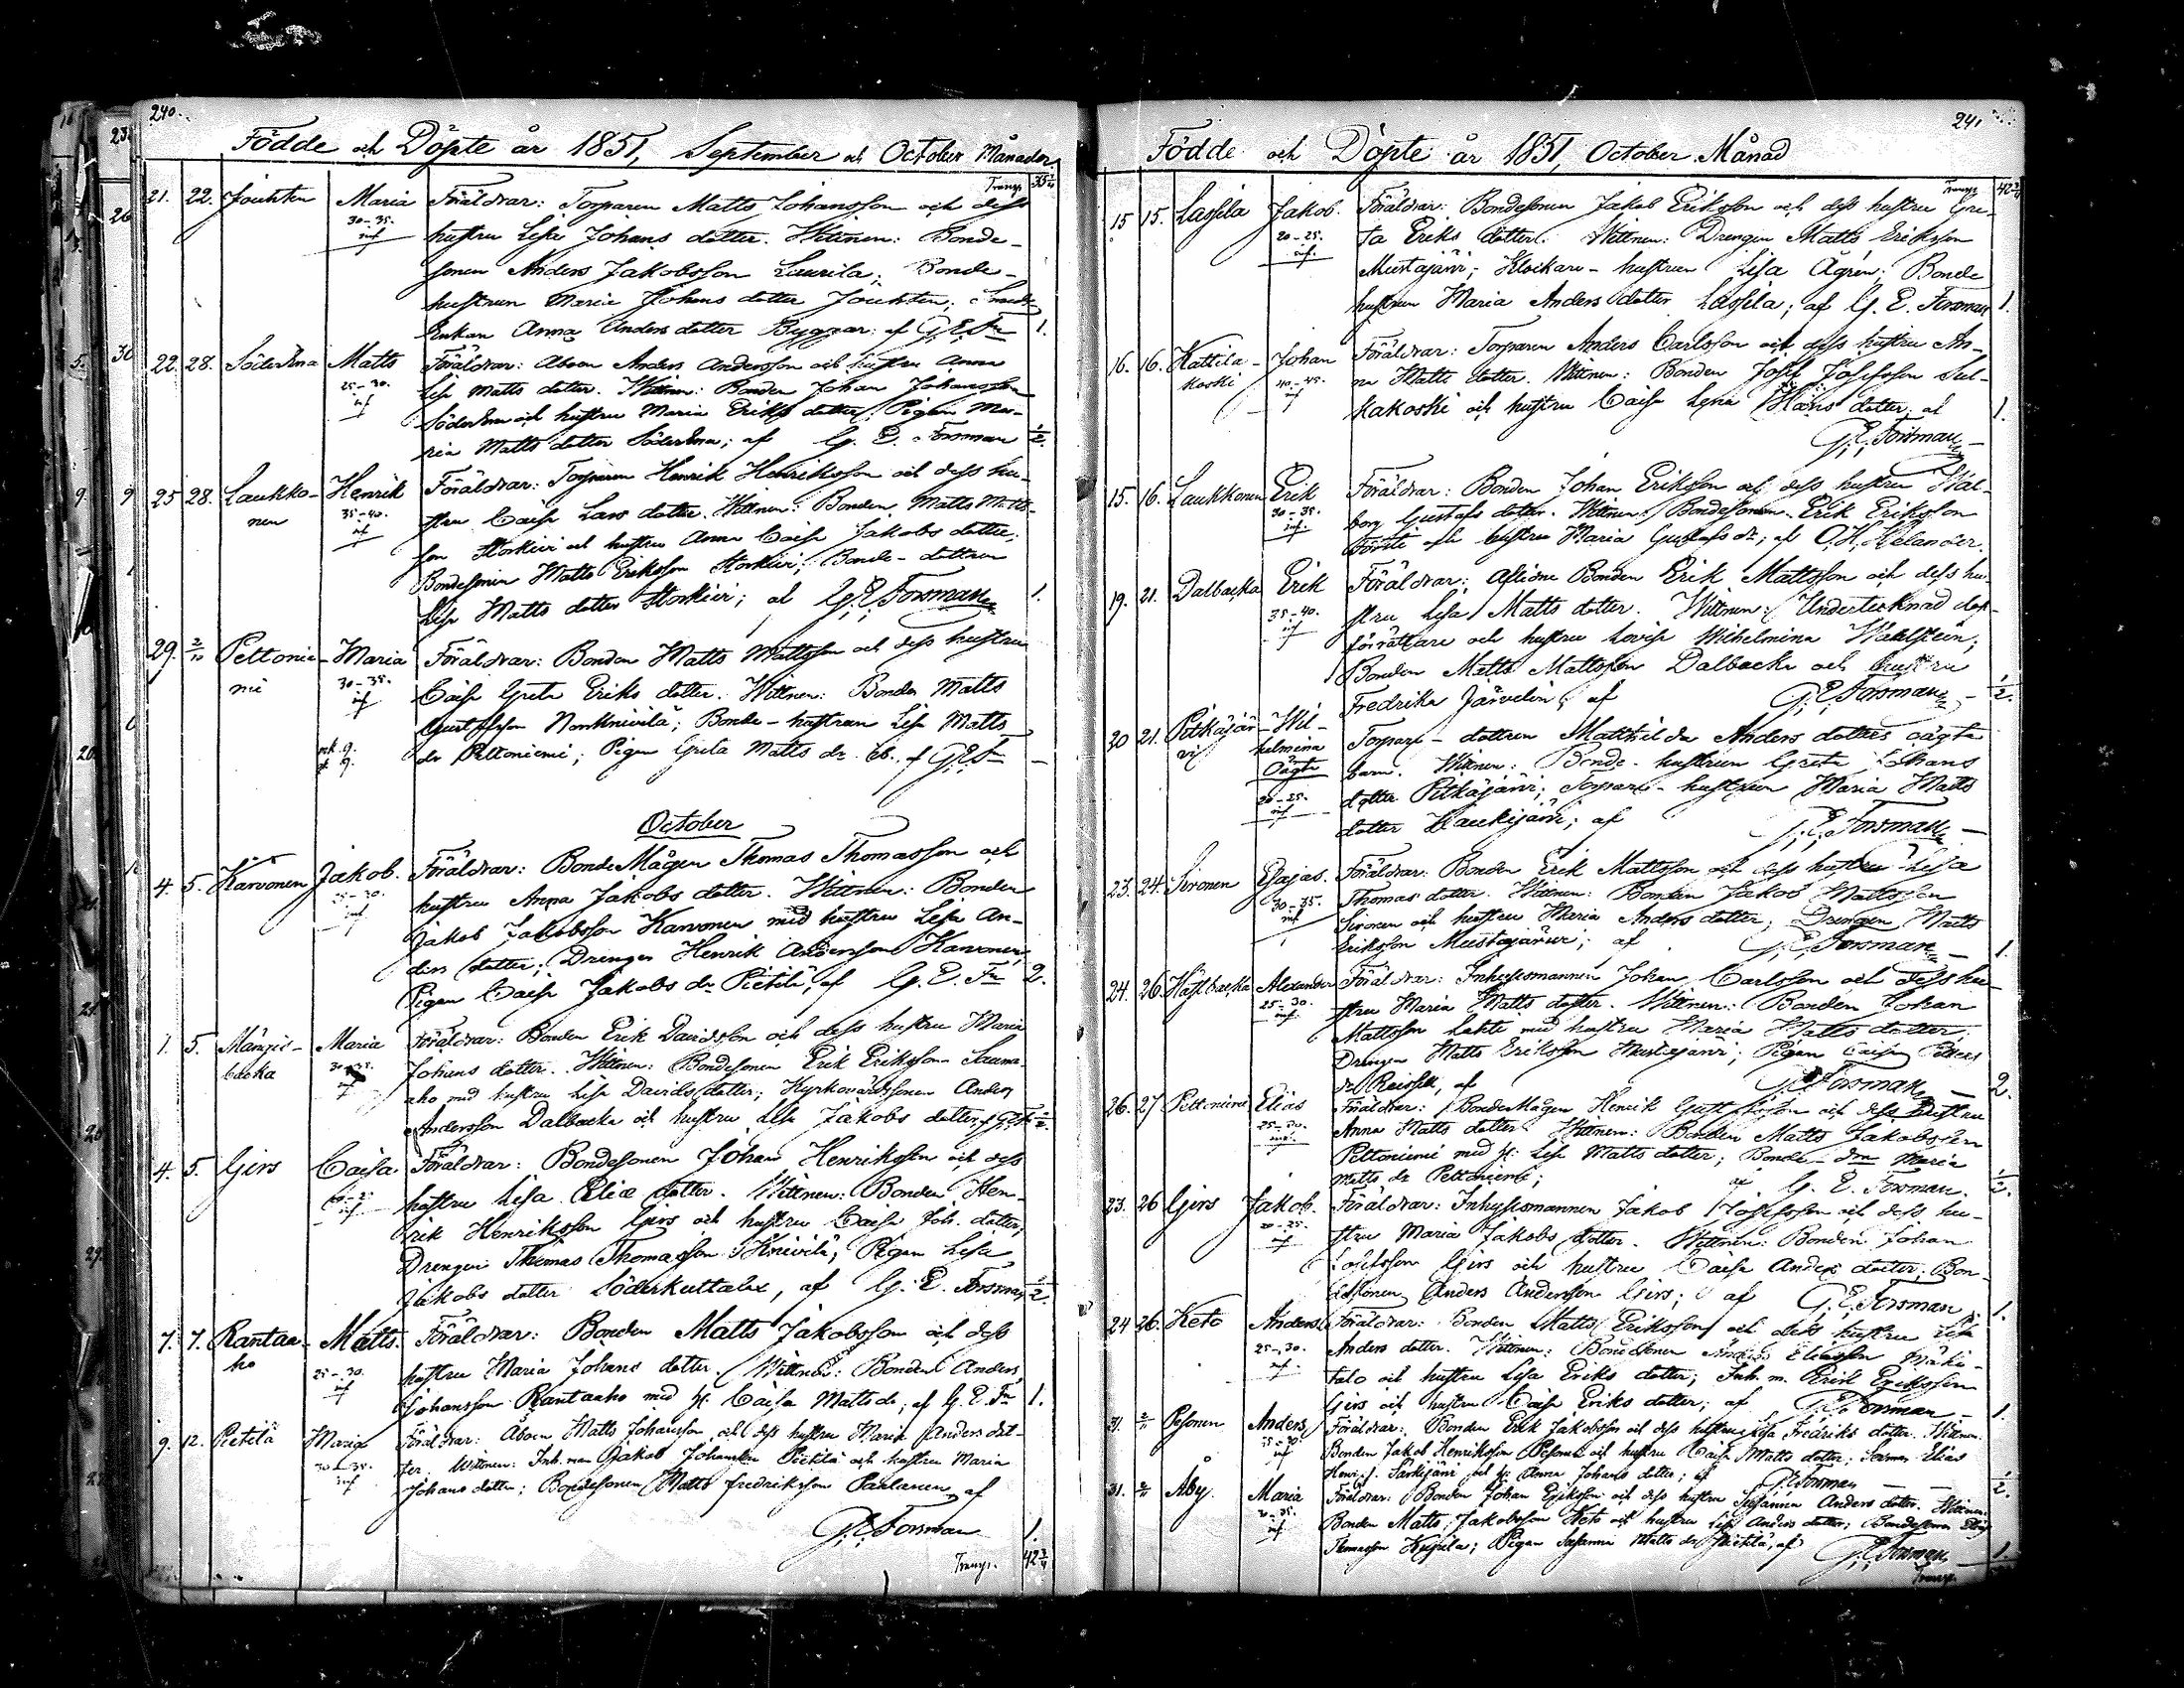 240.
Födde och Döpte år 1851, September och October Månader
Transp. 35 1/4
21. 22. Jouhten Maria Föräldrar: Torparen Matts Johansson och dess
30-35. hustru Lisa Johans dotter. Wittnen: Bonde-
inf sonen Anders Jakobsson Laurila; Bonde-
hustrun Maria Johans dotter Jouhten; Smeds
Enkan Anna Anders dotter Byggar: af G.E.Fn 1.
22. 28. Söderkna Matts Föräldrar: Aboen Anders Andersson och hustru Anna
25-30. Lisa Matts dotter. Wittnen: Bonden Johan Johansson
inf och hustru Maria Eriks dotter; Pigan Ma-
ria Matts dotter; af G. E. Forsman 1/2.
25 28. Laukko- Henrik Föräldrar: Torparen Henrik Henriksson och dess hu-
nen 35-40. stru Caisa Lars dotter. Wittnen: Bonden Matts Matts-
inf son Storkivi och hustru Anna Caisa Jakobs dotter;
Bondesonen Matts Eriksson Storkivi; Bonde-dottren
Lisa Matts dotter Storkivi; af G.E. Forsman 1.
29. 2/10 Peltonie- Maria Föräldrar: Bonden Matts Mattsson och dess hustru
mi 30-35. Caisa Greta Eriks dotter. Wittnen: Bonden Matts
inf Gustafsson Norrknivilä; Bonde-hustrun Lisa Matts
dr Peltoniemi; Pigan Greta Matts dr ib. af G.E.Fn —
October
4. 5. Karvonen Jakob. Föräldrar: BondeMågen Thomas Thomasson och
25-30. hustru Anna Jakobs dotter. Wittnen: Bonden
inf Jakob Jakobsson Karvonen med hustru Lisa An-
ders dotter; Drengen Henrik Andersson Karvonen;
Pigan Caisa Jakobs dr Pietilä, af G. E. Fn 2.
1. 5. Mångis- Maria Föräldrar: Bonden Erik Davidsson och dess hustru Maria
backa 30-35. Johans dotter. Wittnen: Bondesonen Erik Eriksson Sauna-
inf aho med hustru Lisa Davids dotter; Kyrkovärdssonen Anders
Andersson Dalbacka och hustru Lisa Jakobs dotter, af G.E.Fn 1/2.
4. 5. Girs Caisa. Föräldrar: Bondesonen Johan Henriksson och dess
inf hustru Lisa Eliæ dotter. Wittnen: Bonden Hen-
rik Henriksson Girs och hustru Caisa Joh. dotter;
Drengen Thomas Thomasson Knivilä; Pigan Lisa
Jakobs dotter Söderkuttalax, af G. E. Forsman 1/2.
7. 7. Rantaa- Matts. Föräldrar: Bonden Matts Jakobsson och dess
ho 25-30. hustru Maria Johans dotter. Wittnen: Bonden Anders
inf Johansson Rantaaho med H. Caisa Matts dr, af G. E. Fn 1.
9. 12. Pietilä Maria Föräldrar: Åboen Matts Johansson och dess hustru Maria Anders dot-
30-35. ter. Wittnen: Inh. man Jakob Johansson Pietilä och hustru Maria
inf Johans dotter; Bondesonen Matts Fredriksson Paulanen, af
G.E. Forsman 1.
Transp. 42 3/4
241
Födde och Döpte år 1851, October Månad
Transp. 42 3/4
15 15. Lassila Jakob. Föräldrar: Bondesonen Jakob Eriksson och dess hustru Gre-
20-25. ta Eriks dotter. Wittnen: Drengen Matts Eriksson
inf. Mustajärvi; Klockare-hustrun Lisa Ågren; Bonde
hustrun Maria Anders dotter Lassila; af G. E. Forsman 1.
16. 16. Kattila- Johan Föräldrar: Torparen Anders Carlsson och dess hustru An-
koski 40-45. na Matts dotter. Wittnen: Bonden Josef Josefsson Sul-
inf kakoski och hustru Caisa Lena Hans dotter, af 1.
G.E. Forsman —
15. 16. Laukkonen Erik Föräldrar: Bonden Johan Eriksson och dess hustru Wal-
30-35. borg Gustafs dotter. Wittnen: Bondesonen Erik Eriksson
inf. och hustru Maria Gustafs dr; af O.H. Helander.
19. 21. Dalbacka Erik Föräldrar: Aflidne Bonden Erik Mattsson och dess hu-
35-40. stru Lisa Matts dotter. Wittnen: Undertecknad dop-
inf förrättare och hustru Lovisa Wilhelmina Wahlstein;
Bonden Matts Mattsson Dalbacka och hustru
Fredrika Järvelin; af G.E. Forsman — 1/2.
20 21. Pitkäjär- Wil-
vi helmina Torpare-dottren Mathilda Anders dotters oägta
Oägta barn. Wittnen: Bonde-hustrun Greta Johans
20-25. dotter Pitkäjärvi; Torpare-hustrun Maria Matts
inf dotter Haukijärvi; af G.E. Forsman —
23. 24. Sironen Esajas. Föräldrar: Bonden Erik Mattsson och dess hustru Lisa
30-35. Thomas dotter. Wittnen: Bonden Jakob Mattsson
inf Sironen och hustru Maria Anders dotter; Drengen Matts
Eriksson Mustajärvi; af G.E. Forsman — 1.
24. 26. Hästbacka Alexander Föräldrar: Inhysesmannen Johan Carlsson och dess hu-
25-30. stru Maria Matts dotter. Wittnen: Bonden Johan
inf Mattsson med hustru Maria Matts dotter;
Drengen Matts Eriksson Mustajärvi; Pigan Caisa Petters
dr, af G.E. Forsman — 2.
26. 27 Peltoniemi Elias Föräldrar: BondeMågen Henrik Gustafsson och dess hustru
25-30. Anna Matts dotter. Wittnen: Bonden Matts Jakobsson
inf. Peltoniemi med H. Lisa Matts dotter; Bonde-drn Maria
Matts dr Peltoniemi; af G. E. Forsman. 1/2.
23. 26 Girs Jakob. Föräldrar: Inhysesmannen Jakob Josefsson och dess hu-
20-25. stru Maria Jakobs dotter. Wittnen: Bonden Johan
inf Josefsson Girs och hustru Caisa Anders dotter; Bon-
desonen Anders Andersson Girs; af G.E. Forsman 1.
24 26. Keto Anders Föräldrar: Bonden Matts Eriksson och dess hustru Lisa
25-30. Anders dotter. Wittnen: Bondesonen Anders Eliasson Mäki-
inf. talo och hustru Lisa Eriks dotter; Inh. m. Erik Eriksson
Girs och hustru Caisa Eriks dotter; af G.E. Forsman 1.
31. 2/11 Pesonen Anders Föräldrar: Bonden Erik Jakobsson och dess hustru Lisa Fredriks dotter. Wittnen:
25-30. Bonden Jakob Henriksson Pesonen och hustru Caisa Matts dotter; Elias
inf Särkijärvi och H. Anna Johans dotter; af G.E. Forsman — 1/2.
31. 2/11 Åby. Maria Föräldrar: Bonden Johan Eriksson och dess hustru Susanna Anders dotter. Wittnen:
30-35. Bonden Matts Jakobsson Keto och hustru Lisa Anders dotter; Bondesonen
inf Thomasson; Pigan Susanna Matts dr Pietilä, af G.E. Forsman 1.
Transp.